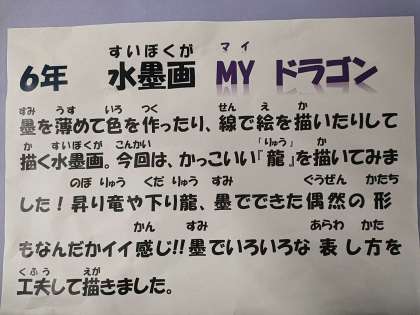 すいぼくが マイ
6年 水墨画 MY ドラゴン
すみ うす いろ つく せん え か
墨を薄めて色を作ったり、線で絵を描いたりして
か すいぼくが こんかい 「りゅう」 か
描く水墨画。今回は、かっこいい『龍』を描いてみま
のぼ りゅう くだ りゅう すみ ぐうぜん かたち
した！昇り竜や下り龍、墨でできた偶然の 形
かん すみ あらわ かた
もなんだかイイ感じ!!墨でいろいろな 表し方を
くふう えが
工夫して描きました。